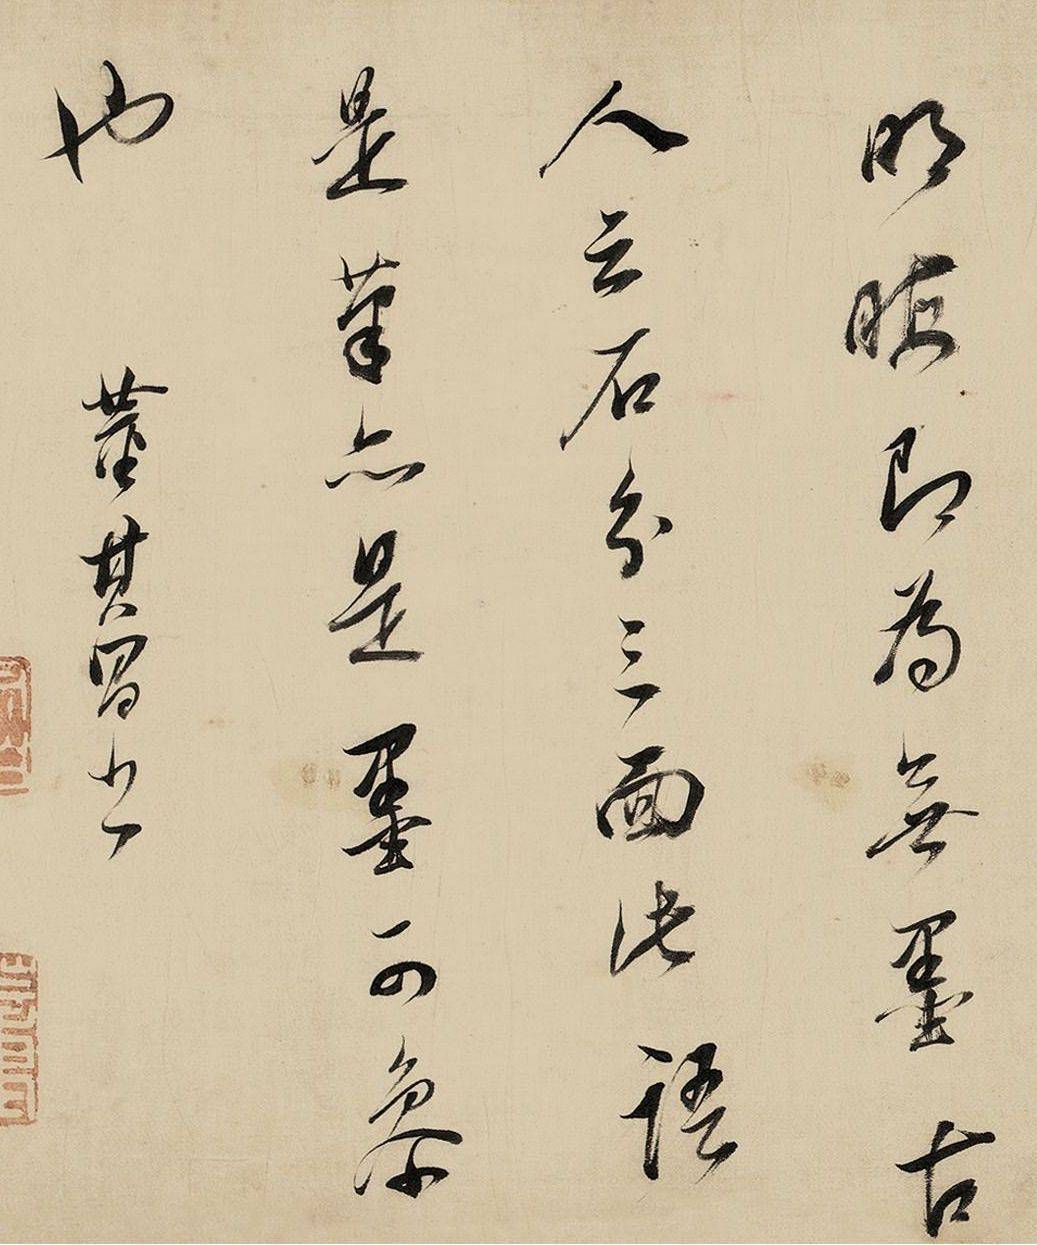 明晦即為無墨古
人云石分三面此語
是筆亦是墨可參
也
董其昌書